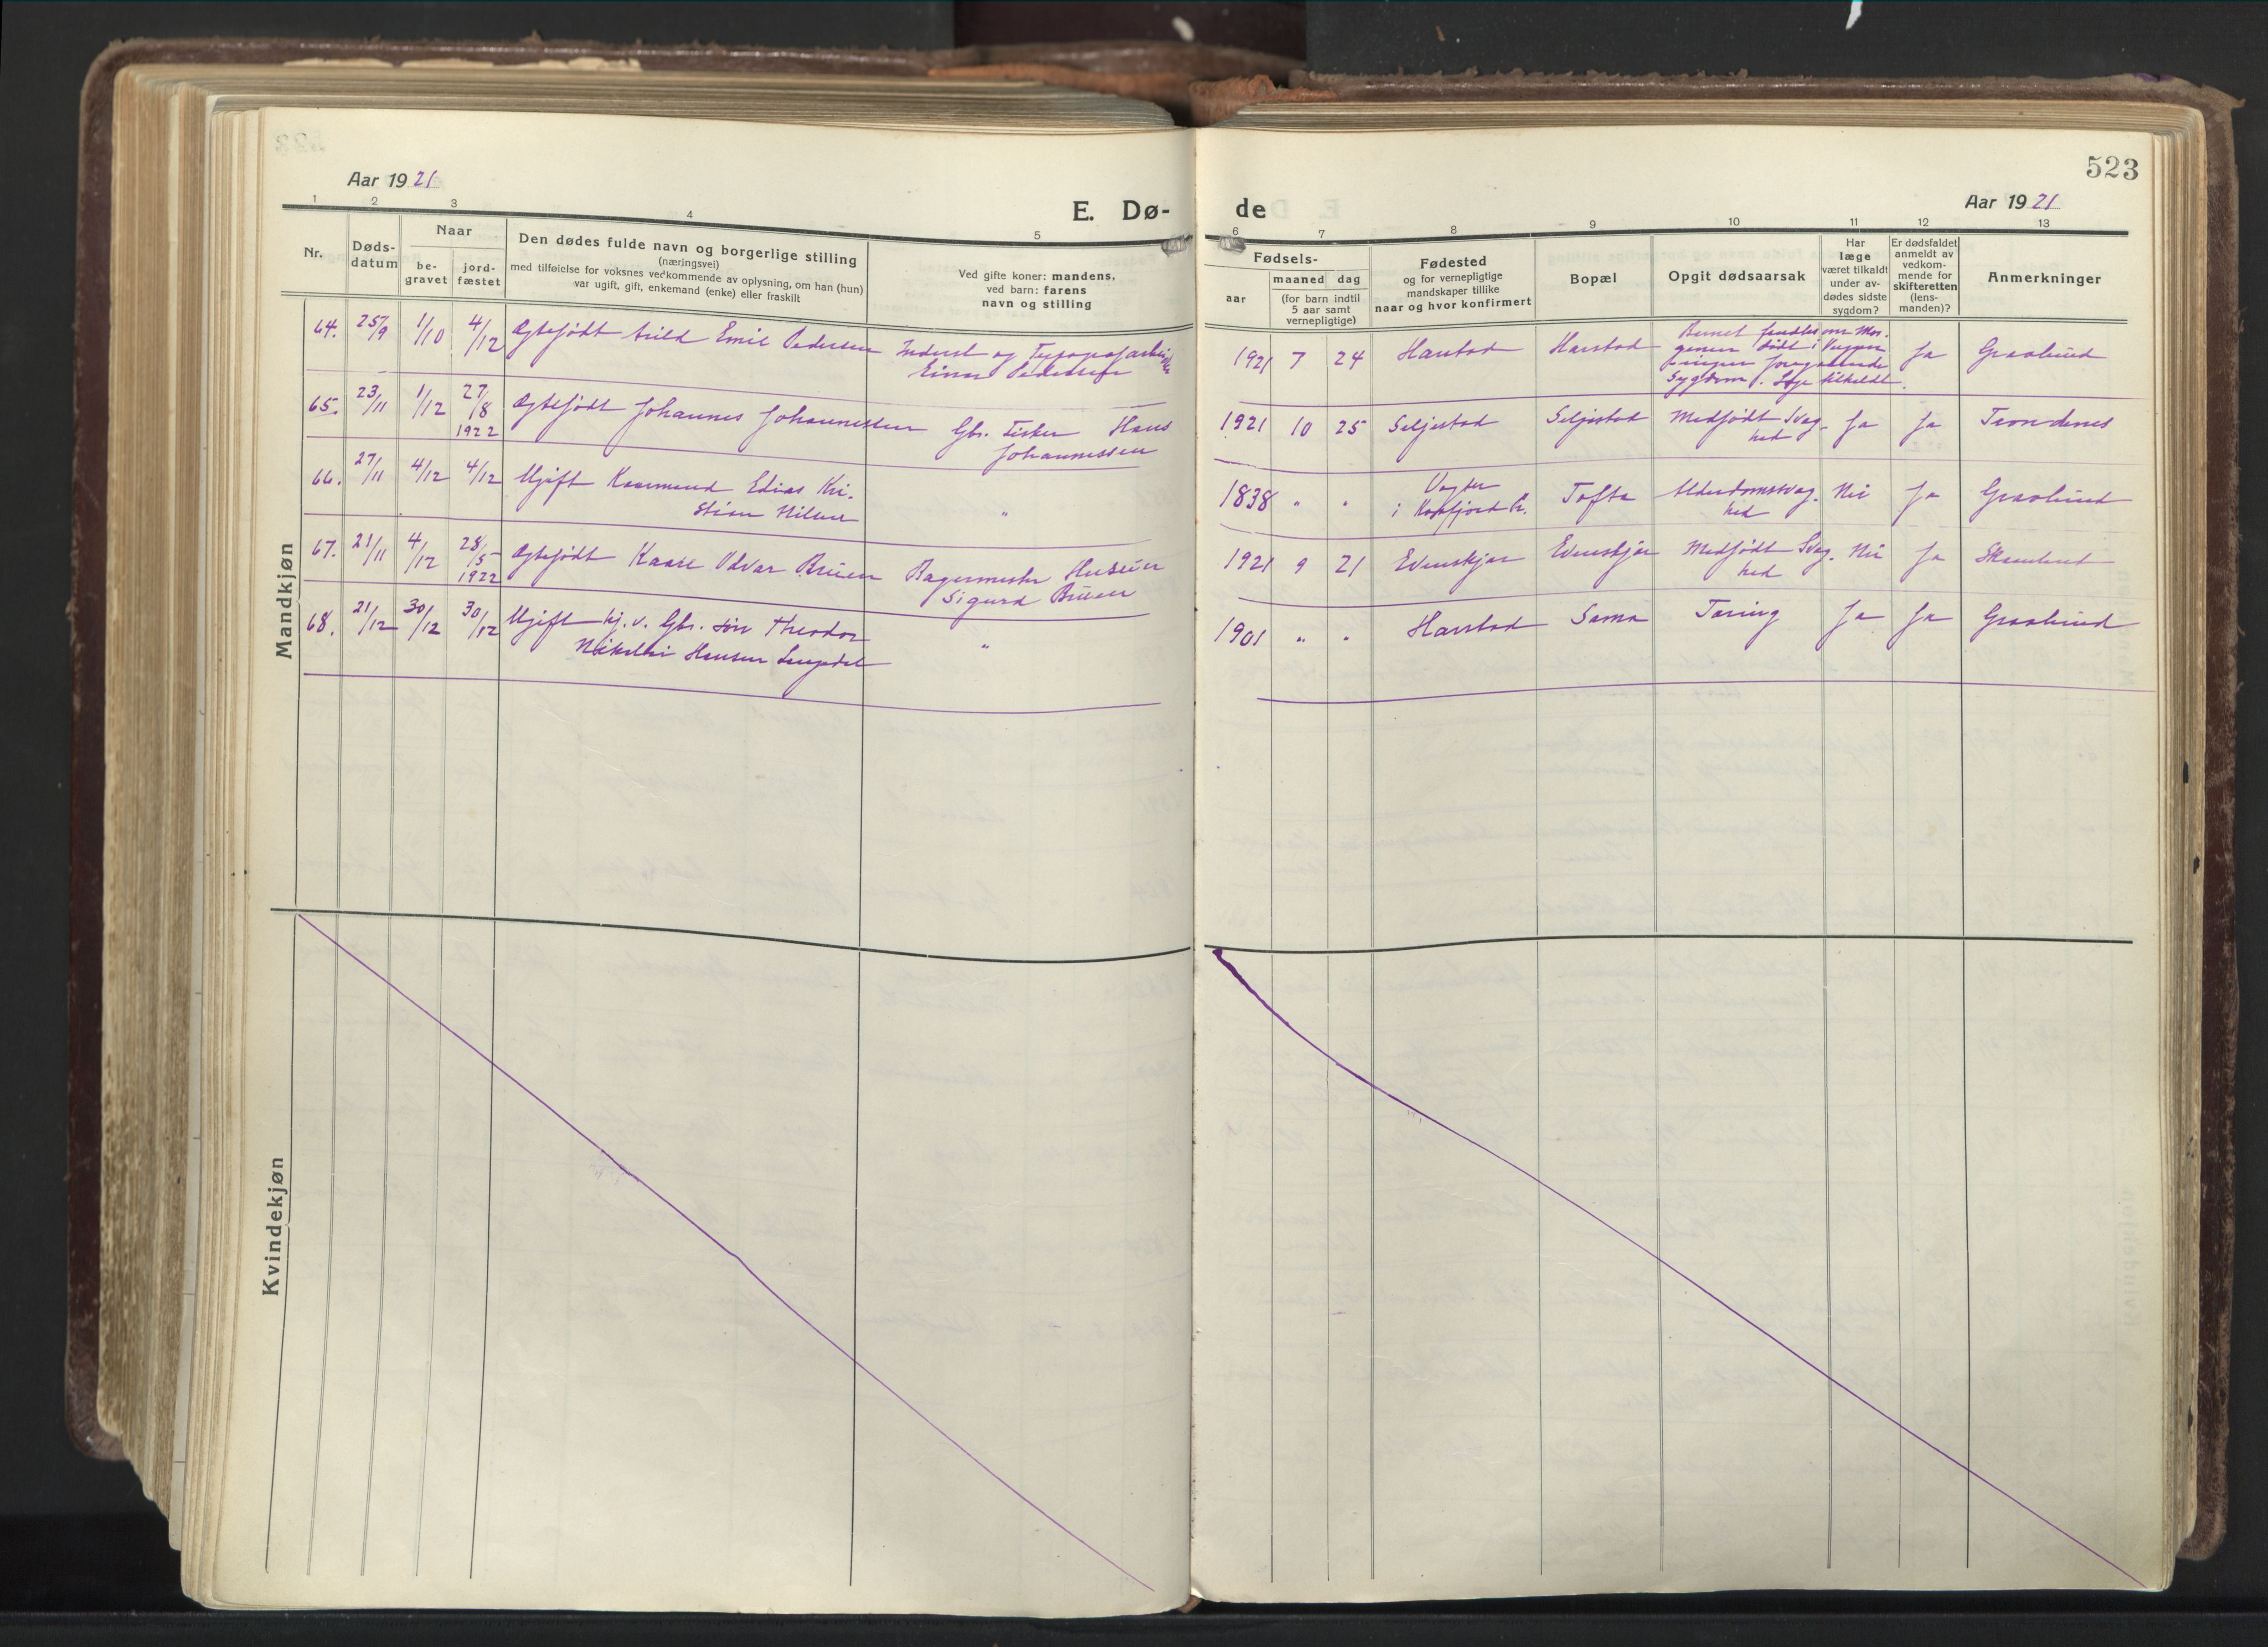 523
Aar 1921
Aar 1921
E. Dø-
de
1 2 3 4 5 6 7 8 9 10 11 12 13
Nr.
Døds-
datum
Naar
be-
gravet
jord-
fæstet
Den dødes fulde navn og borgerlige stilling
(næringsvei)
med tilføielse for voksnes vedkommende av oplysning, om han (hun)
var ugift, gift, enkemand (enke) eller fraskilt
Ved gifte koner: mandens,
ved barn: farens
navn og stilling
Fødsels-
aar
maaned dag
(for barn indtil
5 aar samt
vernepligtige)
Fødested
og for vernepligtige
mandskaper tillike
naar og hvor konfirmert
Bopæl
Opgit dødsaarsak
Har
læge
været tilkaldt
under av-
dødes sidste
sygdom?
Er dødsfaldet
anmeldt av
vedkom-
mende for
skifteretten
(lens-
manden)?
Anmerkninger
Mandkjøn
64. 25/9 1/10 4/12 Ægtefødt Arild Emil Pedersen
Inderst og
Einar Pedersen
1921 7 24 Harstad Harstad
Barnet fandtes om Mor-
genen dødt i
foregaaende
Sygdom. Læge tilkaldt.
Ja Graalund
65. 23/11 1/12 27/8
1922
Ægtefødt Johannes Johannessen
Gbr. Fisker Hans
Johannessen
1921 10 25 Seljestad Seljestad Medfødt Svag-
hed
Ja Ja Trondenes
66. 27/11 4/12 4/12 Ugift Edias Kri-
stian Nilsen
"
1838 " "
i Kvæfjord
Tofta Alderdomssvag-
hed
Nei Ja Graalund
67. 21/11 4/12 28/5
1922
Ægtefødt Kaare Odvar Bruen
Bagermester
Sigurd Bruen
1921 9 21 Evenskjær Evenskjær Medfødt Svag-
hed
Nei Ja
68. 21/12 30/12 30/12 Ugift hj. v. Gbr. søn Theodor
Nikolai Hansen
"
1901 " " Harstad Sama Tæring Ja Ja Graalund
Kvindekjøn